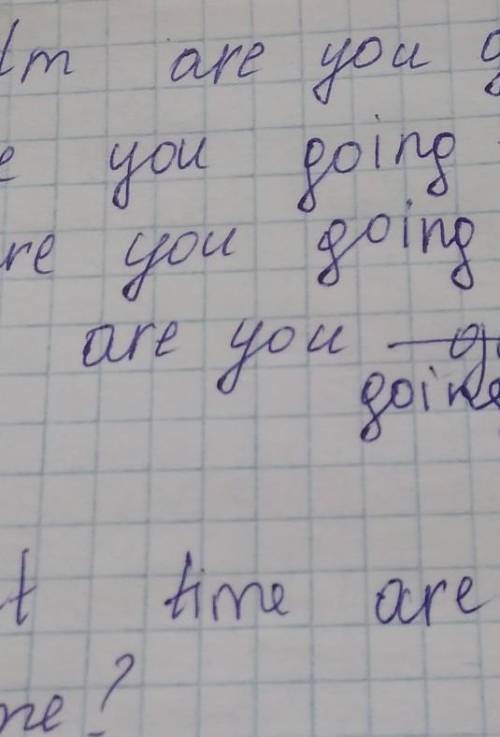 are you
you going
are you going
are you
going
time are